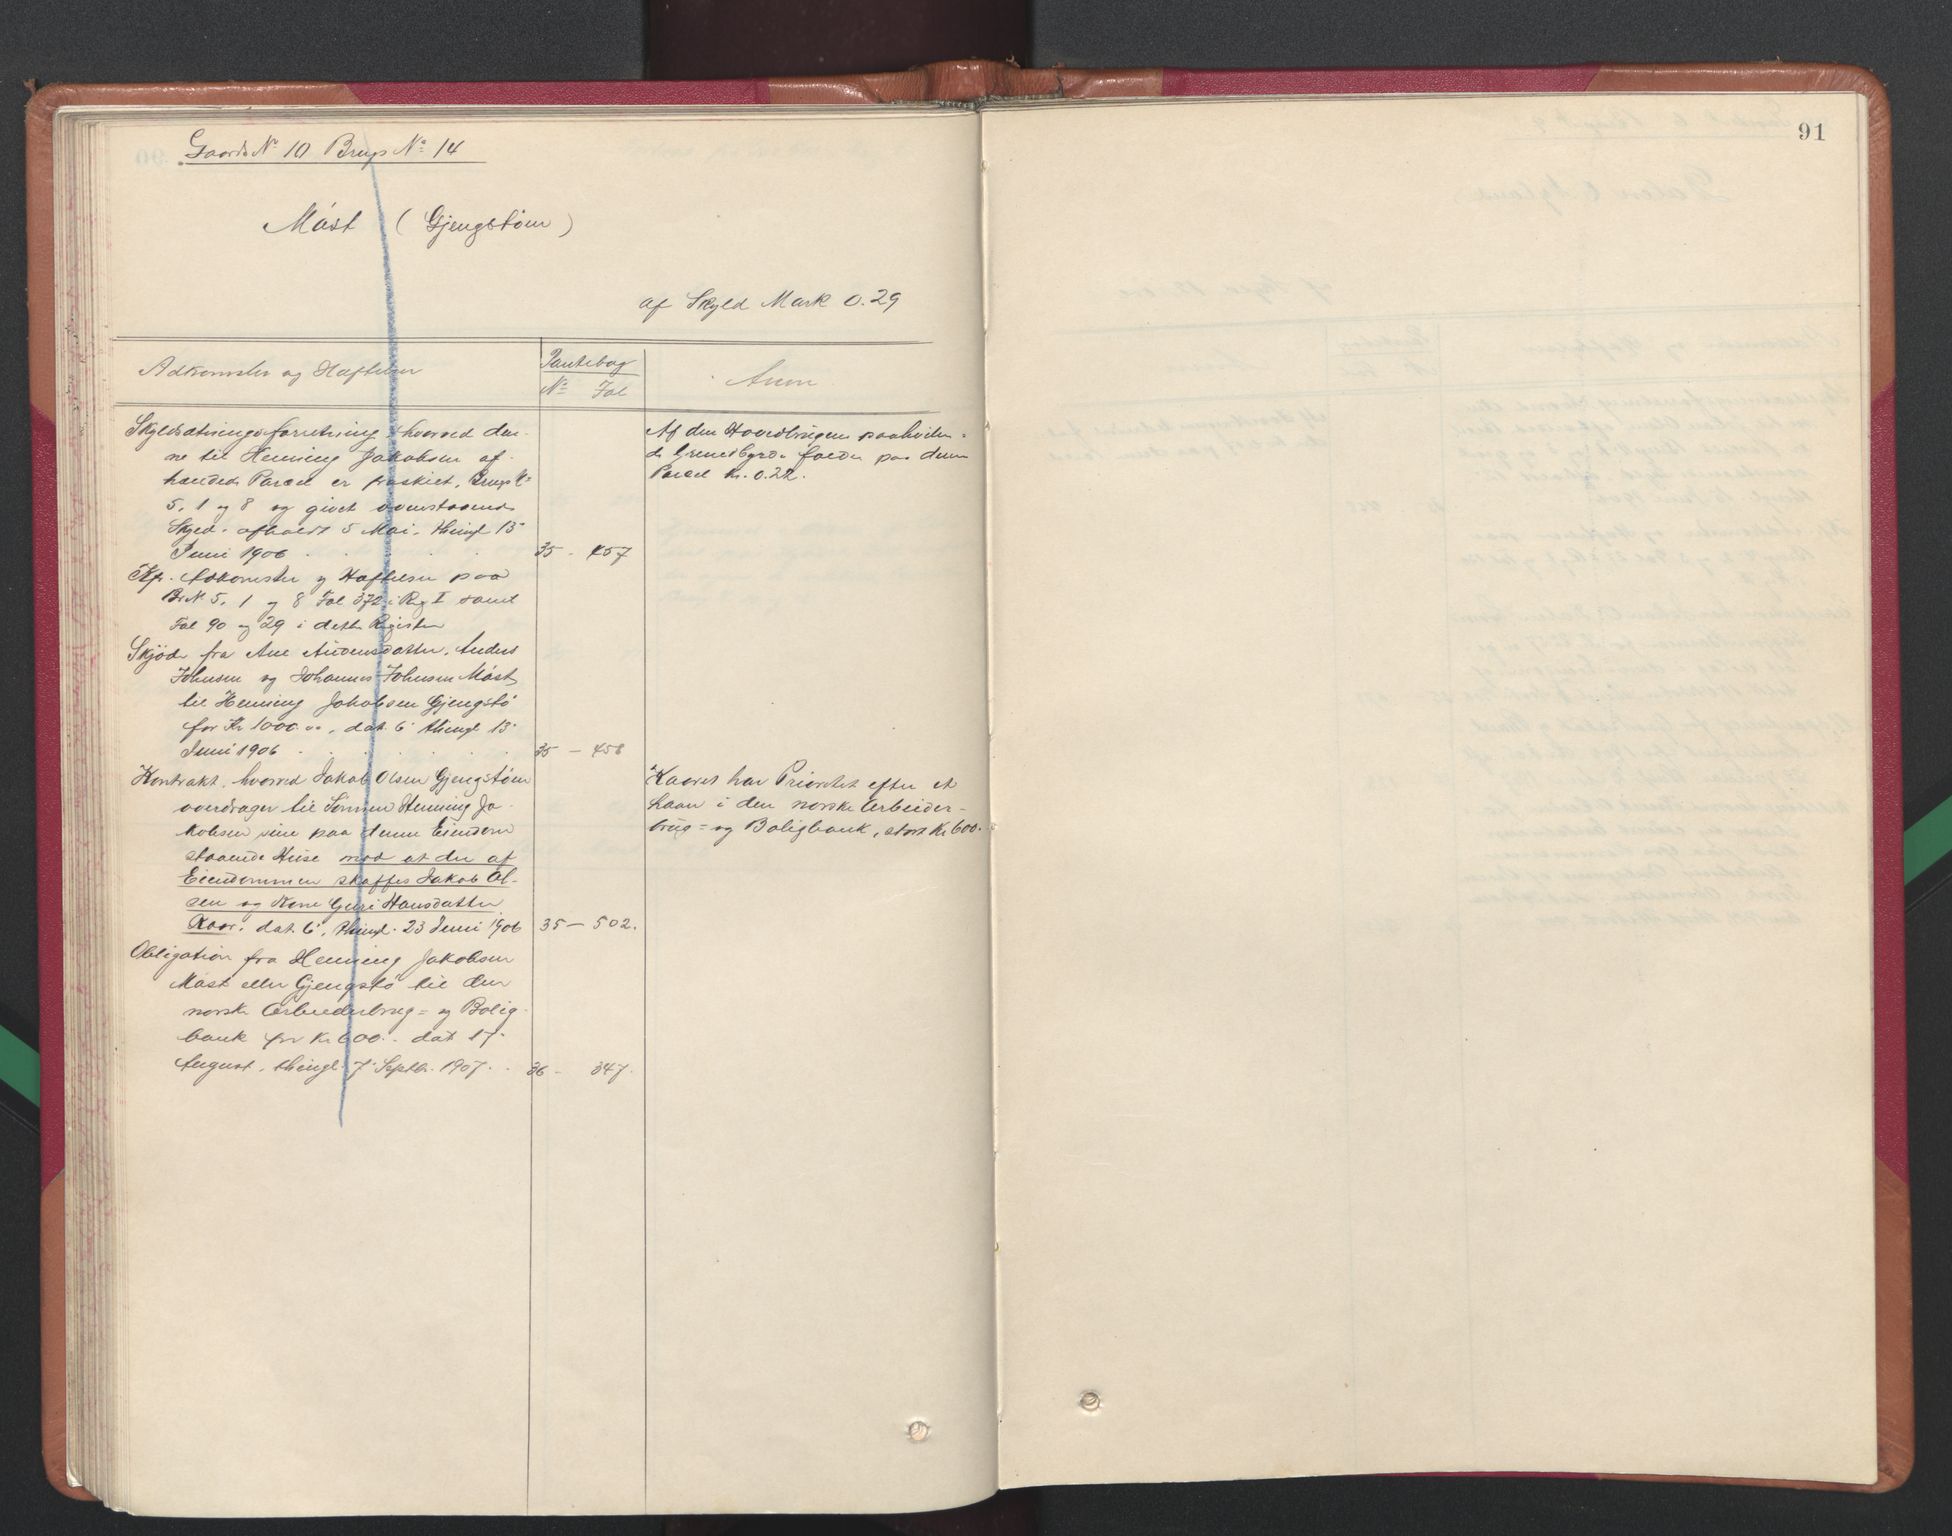 Gaards No 10 Brugs No 14
91
Måst ( Gjengstøm )
af Skyld Mark 0.29
Adkomster og Hæftelser
Pantebog
No Fol
Anm
Skyldsætningsforretning, hvorved den-
ne til Henning Jakobsen af-
hændede Parcel er fraskilt, Brugs No
5, 1 og 8 og givet ovenstaaende
Skyld. afholdt 5 Mai, thingl 13
Juni 1906 . . . . 35 - 457
Af den Hovedbrugene paahvilen=
de Grundbyrde falder paa denne
Parcel Kr. 0.22.
Kfr. Adkomster og Hæftelser paa
Br No 5, 1 og 8 Fol 372 i Reg I samt
Fol 90 og 29 i dette Register
Skjøde fra Ane Andersdatter, Anders
Johnsen og Johannes Johnsen Måst
til Henning Jakobsen Gjengstø
for Kr 1000.00, dat. 6' thingl 13'
Juni 1906 . . . . 35 - 458
Kontrakt, hvorved Jakob Olsen Gjengstøm
overdrager til Sønnen Henning Ja-
kobsen sine paa denne Eiendom
staaende Huse mod at der af
Eiendommen skaffes Jakob Ol-
sen og Kone Guri Hansdatter
Kaar, dat. 6', thingl. 23 Juni 1906 35 - 502.
Kaaret har Prioritet efter et
Laan i den norske Arbeider-
brug= og Boligbank, stort Kr 600.
Obligation fra Henning Jakobsen
Måst eller Gjengstø til den
norske Arbeiderbrug= og Bolig-
bank for Kr 600.- dat 17-
August, thingl 7' Septbr. 1907. . 36 - 347.